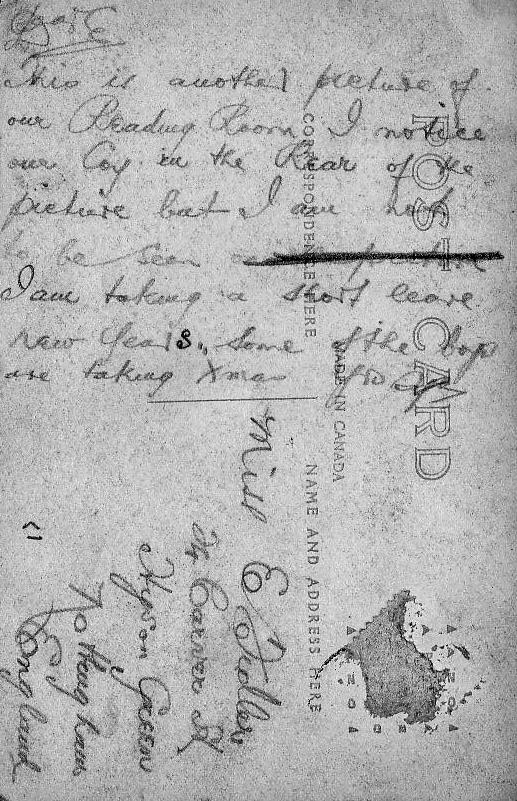 This is another picture of
our Reading Room I notice
our Coy in the Rear of the
picture but I am not
to be seen
I am taking a short leave
new Years. Some of the boys
are taking Xmas
POST CARD
CORRESPONDENCE HERE
MADE IN CANADA
NAME AND ADDRESS HERE
Miss E Fuller
Carver St
Hyson Green
Nottingham
England